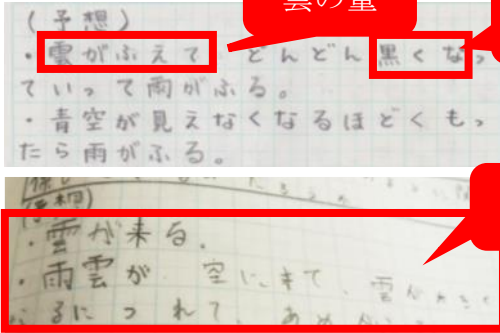 雲の量
(予想)
・雲がふえて どんどん黒くなっ
ていって雨がふる。
・青空が見えなくなるほどくもっ
たら雨がふる。
(予想)
・雲が来る。
・雨雲が 空にきて、雲が
るにつれて、